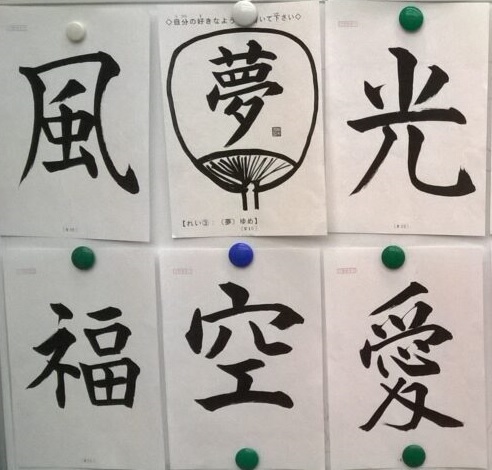 風
◇自分の好きなよう
いて下さい◇
夢
【れい③:(夢)ゆめ】
光
福
空
愛